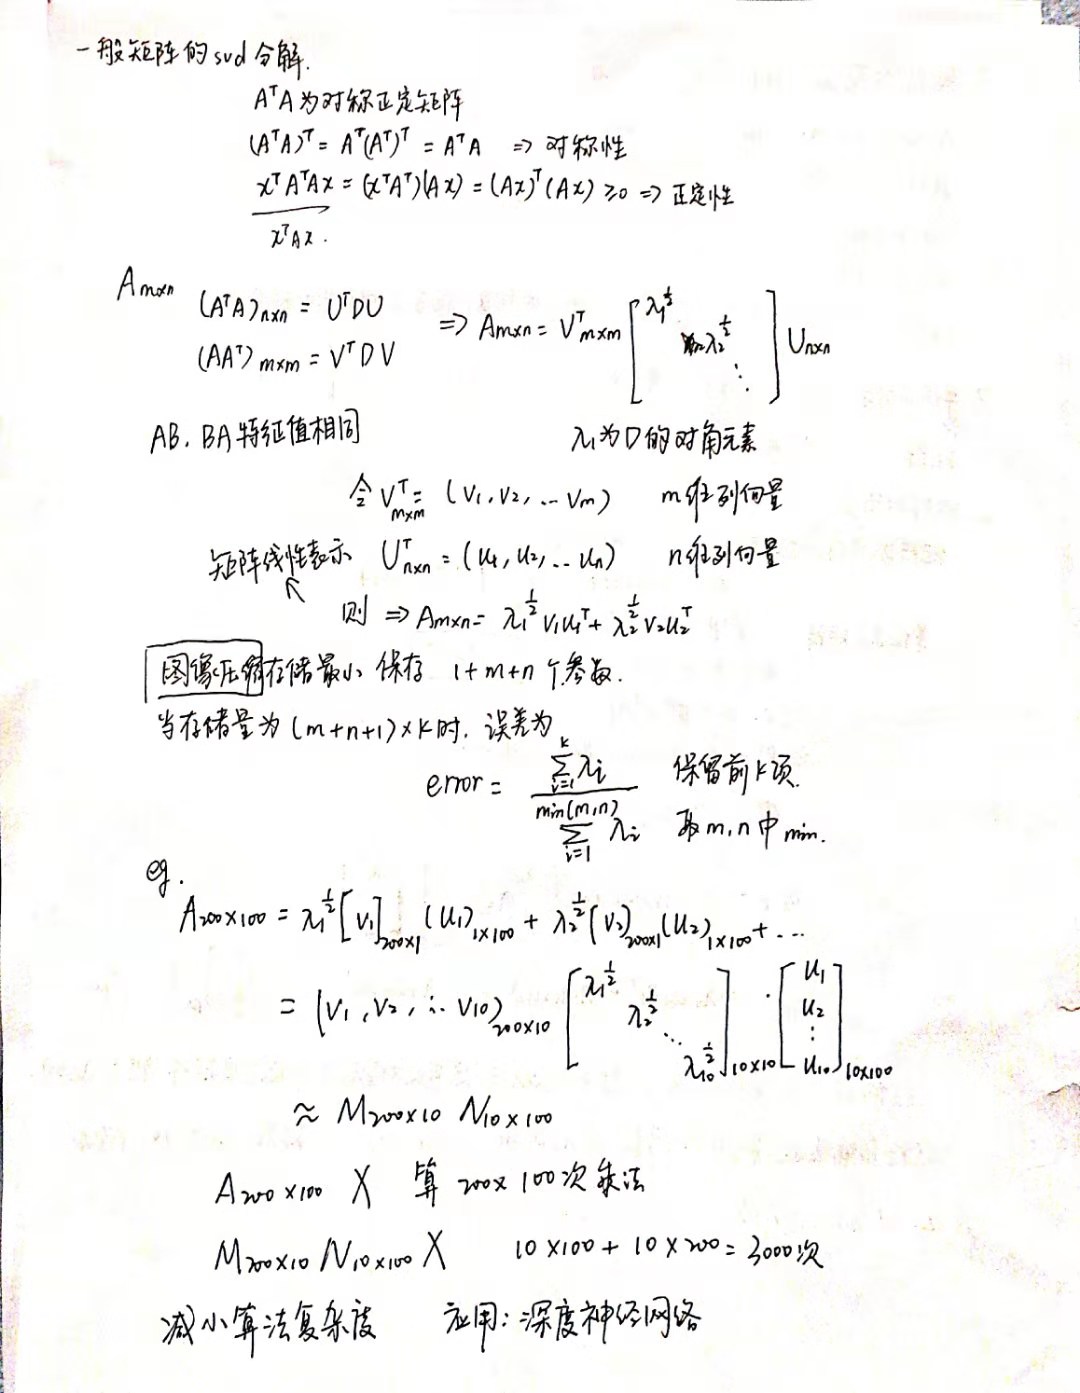 一般矩阵的svd分解.
AᵀA为对称正定矩阵
(AᵀA)ᵀ = Aᵀ(Aᵀ)ᵀ = AᵀA ⇒ 对称性
xᵀAᵀAx = (xᵀAᵀ)(Ax) = (Ax)ᵀ(Ax) ≥0 ⇒ 正定性
xᵀAx.
Am×n (AᵀA)n×n = UᵀDU
(AAᵀ)m×m = VᵀDV
⇒ Am×n = Vᵀm×m [λ₁^½ λ₂^½ ⋱] Un×n
AB, BA特征值相同 λi为D的对角元素
令 Vᵀm×m = (V₁, V₂, … Vm) m维列向量
矩阵线性表示 Uᵀn×n = (u₁, u₂, … un) n维列向量
则 ⇒ Am×n = λ₁^½ V₁u₁ᵀ + λ₂^½ V₂u₂ᵀ
图像压缩存储最小 保存 1+m+n个参数.
当存储量为(m+n+1)×k时, 误差为
error = ∑_{i=1}^{k} λi / ∑_{i=1}^{min(m,n)} λi 保留前k项.
取m,n中min.
eg.
A200×100 = λ₁^½ [V₁]200×1 (U₁)1×100 + λ₂^½ (V₂)200×1 (U₂)1×100 + …
= (V₁, V₂, … V10)200×10 [λ₁^½ λ₂^½ ⋱ λ10^½]10×10 · [U₁ U₂ ⋮ U10]10×100
≈ M200×10 N10×100
A200×100 X 算 200×100次乘法
M200×10 N10×100 X 10×100 + 10×200 = 3000次
减小算法复杂度 应用: 深度神经网络